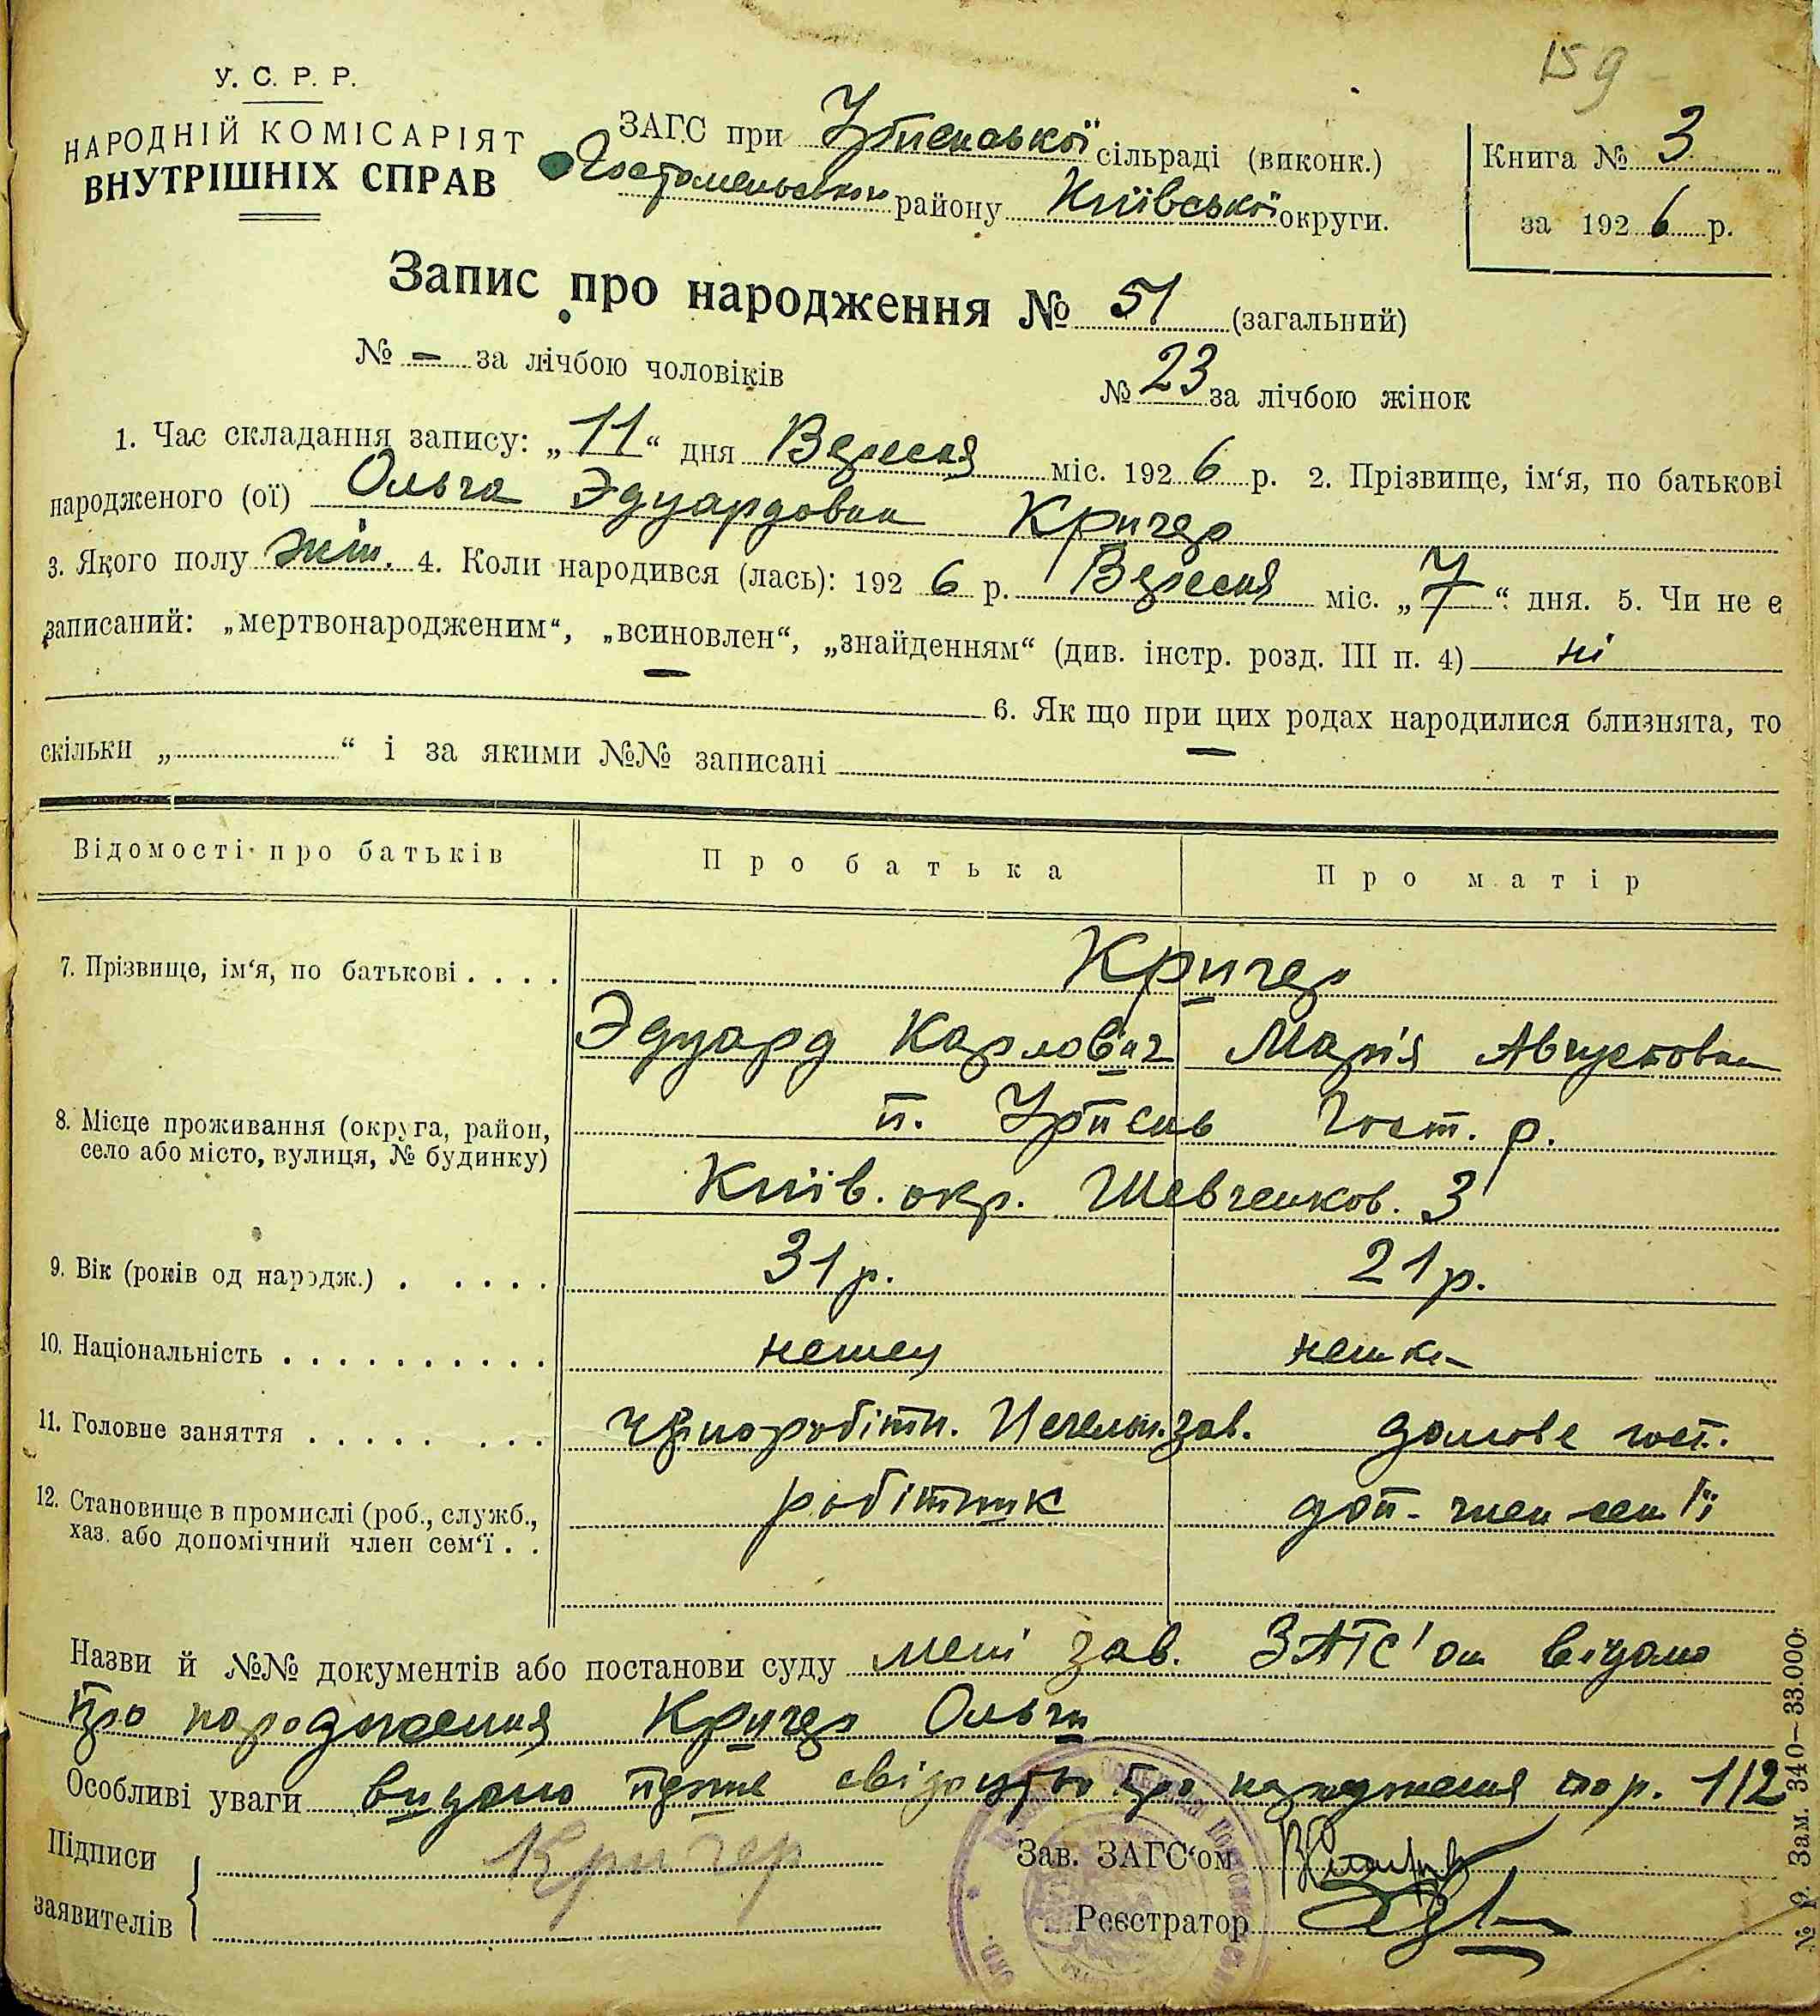 159
У. С. Р. Р.
НАРОДНІЙ КОМІСАРІЯТ
ВНУТРІШНІХ СПРАВ
ЗАГС при Ірпенської сільраді (виконк.)
Гостомельськ району Київської округи.
Книга № 3
за 1926 р.
Запис про народження № 51 (загальний)
№ – за лічбою чоловіків № 23 за лічбою жінок
1. Час складання запису: „11“ дня Вересня міс. 1926 р. 2. Прізвище, ім‘я, по батькові
народженого (ої) Ольга Эдуардовна Кричер
3. Якого полу жін. 4. Коли народився (лась): 1926 р. Вересня міс. „7“ дня. 5. Чи не є
записаний: „мертвонародженим“, „всиновлен“, „знайденням“ (див. інстр. розд. III п. 4) ні
—
6. Як що при цих родах народилися близнята, то
скільки „ “ і за якими №№ записані —
Відомості про батьків Про батька Про матір
7. Прізвище, ім‘я, по батькові . . . . Кричер
Эдуард Карлович Марія Августовна
8. Місце проживання (округа, район, п. Ірпень Гост. р.
село або місто, вулиця, № будинку)
Київ. окр. Шевченков. 3
9. Вік (років од народж.) . . . . . 31 р. 21 р.
10. Національність . . . . . . . . . . . немец немка
11. Головне заняття . . . . . . . . чорноробітн. зав. домове гост.
12. Становище в промислі (роб., служб., робітник доп. член сем'ї
хаз. або допомічний член сем‘ї . .
Назви й №№ документів або постанови суду мені зав. ЗАГС'ом відомо
про народження Кричер Ольги
Особливі уваги видано свідоцтво про народження по р. 112
Підписи Кричер Зав. ЗАГС‘ом
заявителів Реєстратор
№ 19. Зам. 340—33.000.